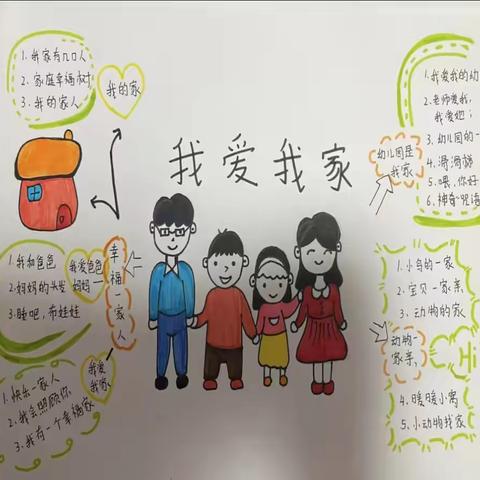 我爱我家
1.我家有几口人
2.家庭幸福树
3.我的家人
我的家
1.我和爸爸
2.妈妈的头发
3.睡吧,布娃娃
我爱爸爸
妈妈
幸福一家人
1.快乐一家人
2.我会照顾你
3.我有一个幸福家
我爱
我家
1.我爱我的幼
2.老师爱我,
我爱她;
3.幼儿园的一
4.滑滑梯
5.喂,你好
6.神奇咒语
幼儿园是
我家
1.小鸟的一家
2.宝贝一家亲
3.动物的家
动物一
家亲
4.暖暖小窝
5.小动物找家